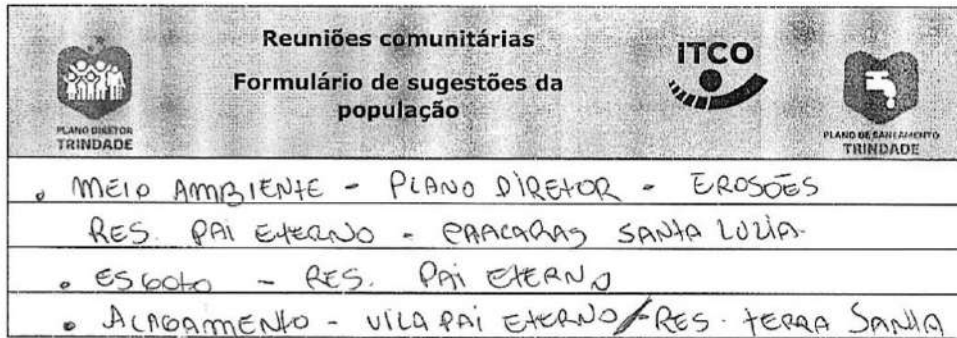 Reuniões comunitárias
Formulário de sugestões da
população
PLANO DIRETOR
TRINDADE
ITCO
PLANO DE SANEAMENTO
TRINDADE
• MEIO AMBIENTE - PLANO DIRETOR - EROSÕES
RES. PAI ETERNO - CHACARAS SANTA LUZIA.
• ESGOTO - RES. PAI ETERNO
• ALAGAMENTO - VILA PAI ETERNO / RES. TERRA SANTA